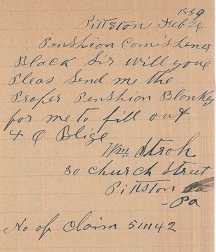 1889
Pittston Feb 26
Penshion Com'shener
Black Sir Will you
Pleas Send me the
Proper Penshion Blanks
for me to fill out
& O Blige
Wm Stroh
30 Church Street
Pittston
- Pa
No of Claim 511142